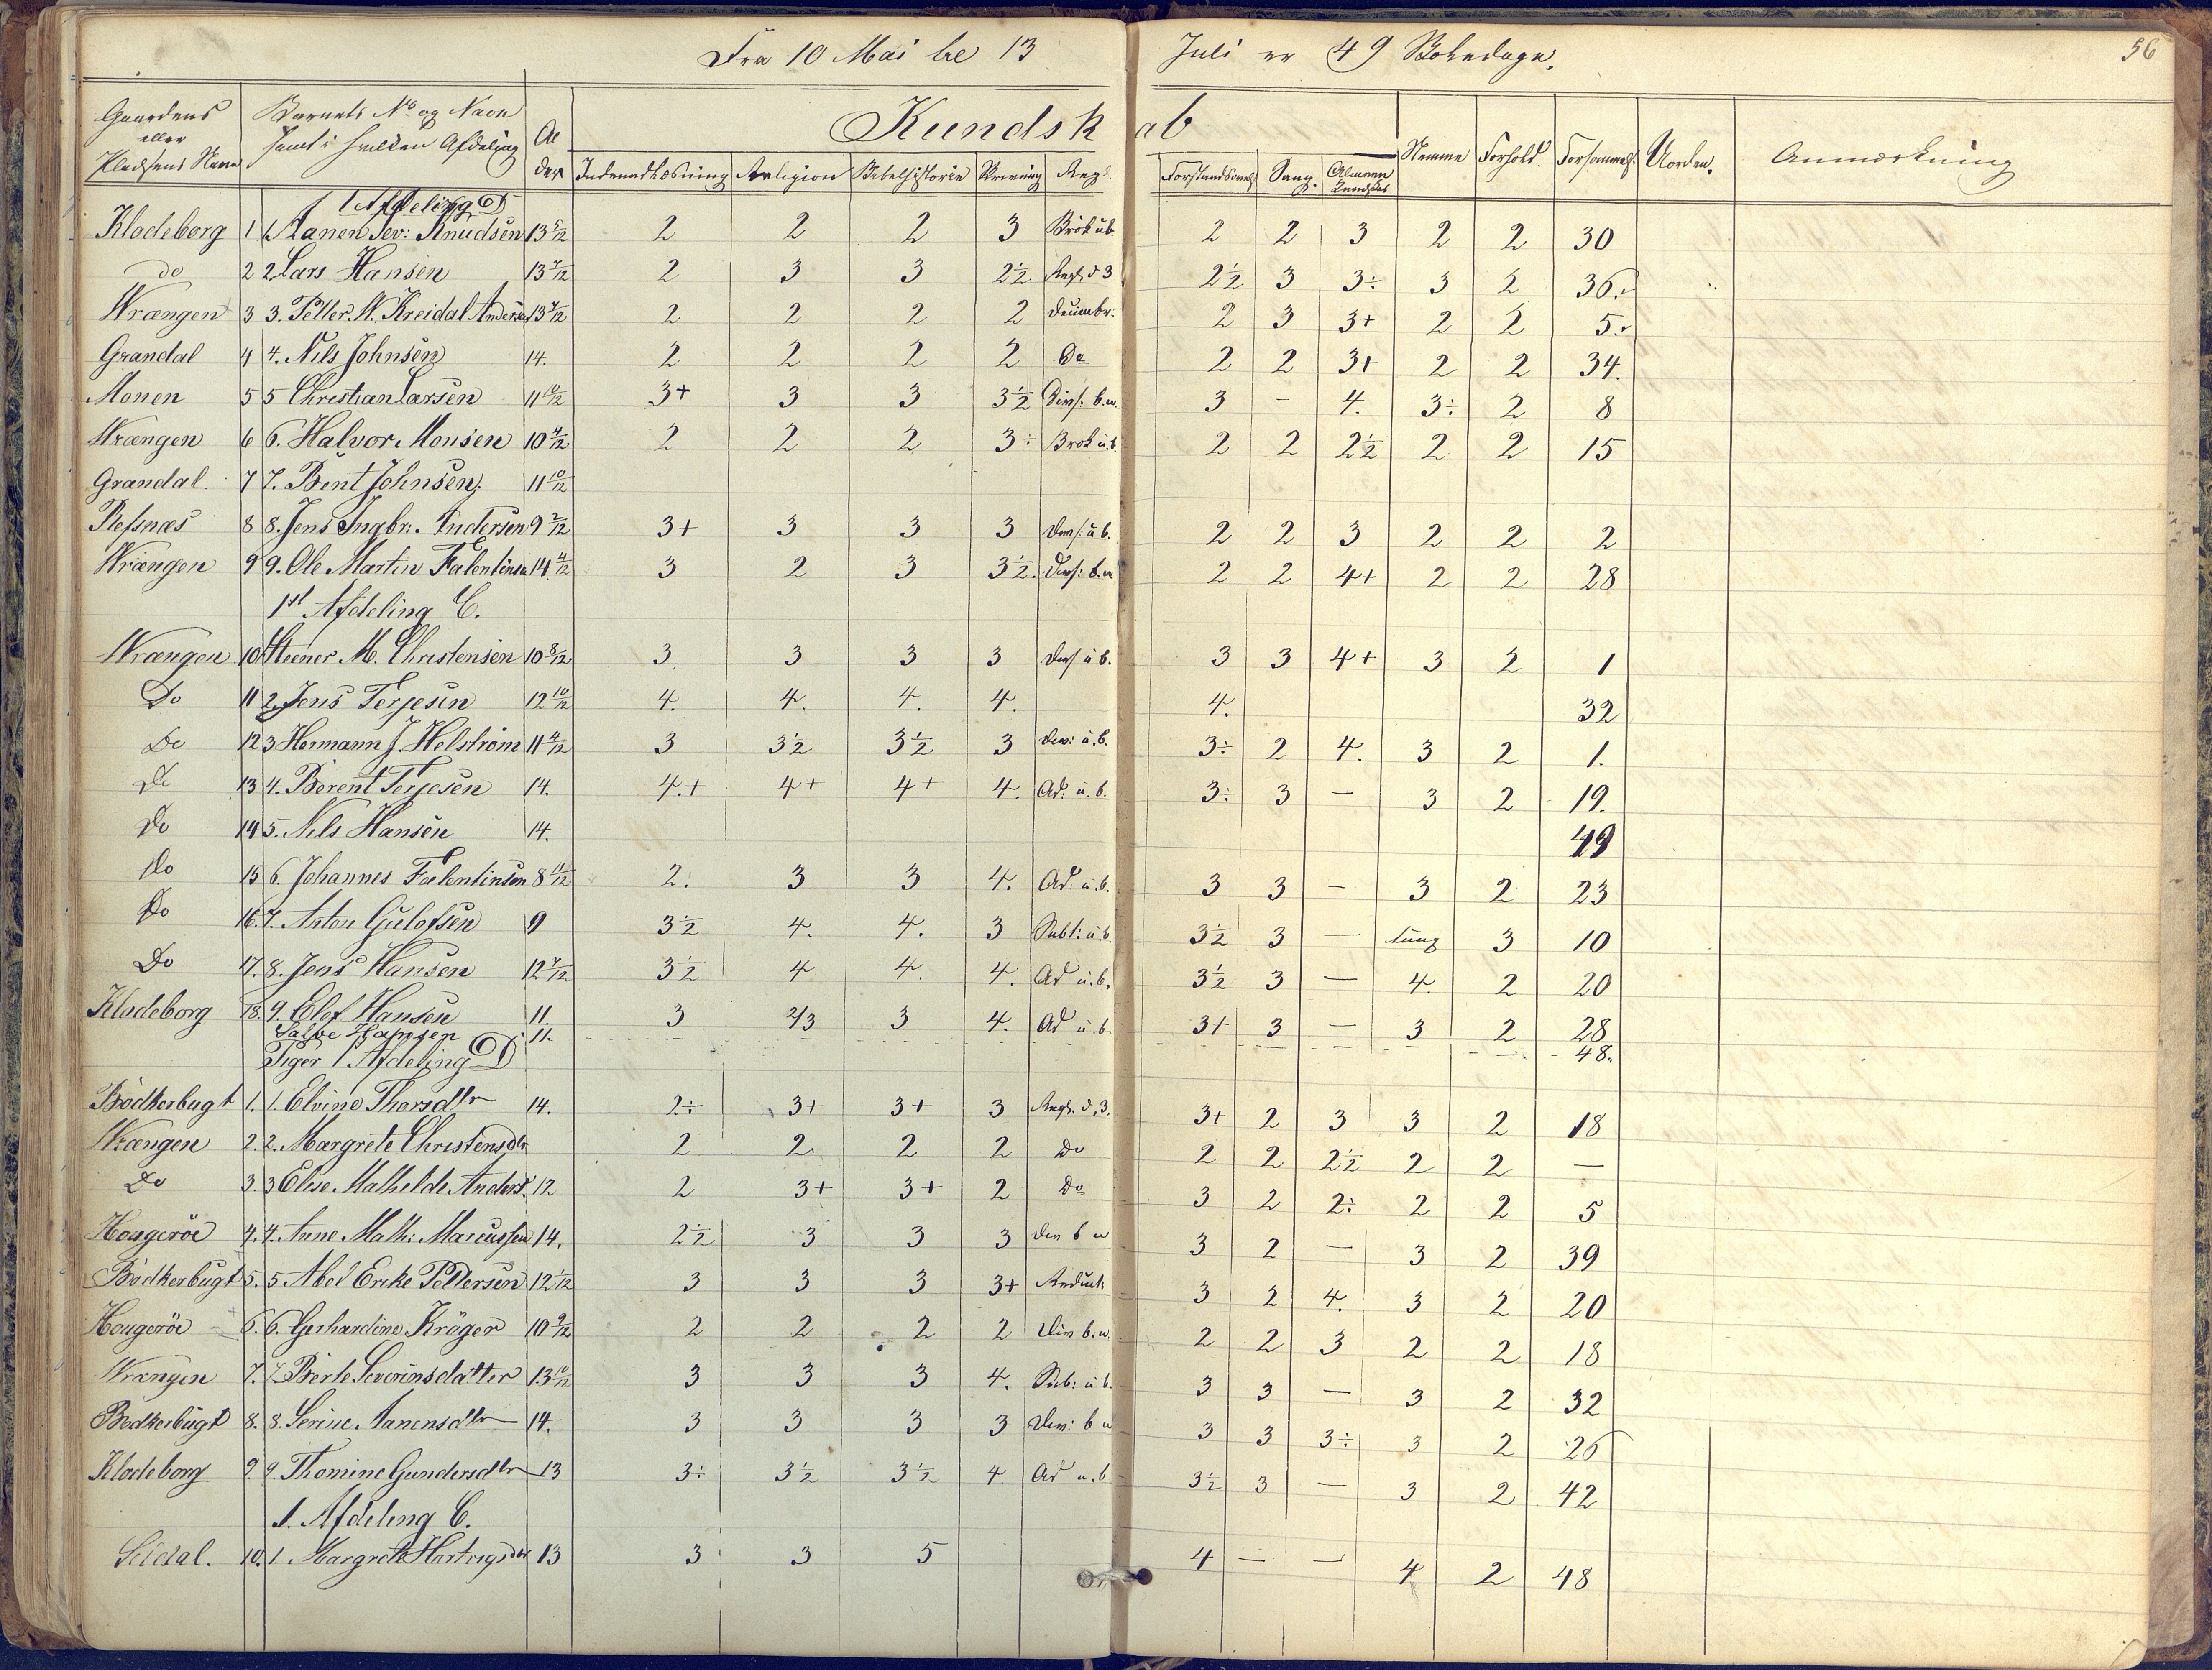 Fra 10 Mai til 13 Juli er 49 Skoledage.
56
Gaardens eller Pladsens Navn | Barnets No og Navn samt i hvilken Afdeling | Alder | Kundskab | Stemme | Forhold | Forsømmels. | Uorden. | Anmærkning
Indenadlæsning | Religion | Bibelhistorie | Skrivning | Regn. | Forstandsøvels. | Sang. | Almeen Kundskab
1 Afdeling D
Klodeborg 1 1. Aanen Sev: Knudsen 13 5/12 2 2 2 3 Brök u.b. 2 2 3 2 2 30
do 2 2 Lars Hansen 13 7/12 2 3 3 2½ Regl. d 3 2½ 3 3÷ 3 2 36.
Wrængen 3 3. Petter. N. Kreidal Andersen 13 7/12 2 2 2 2 2 3 3+ 2 2 5.
Grandal 4 4. Nils Johnsen 14. 2 2 2 2 Do 2 2 3+ 2 2 34.
Monen 5 5 Christian Larsen 11 10/12 3+ 3 3 3½ Divis: b.n. 3 - 4. 3÷ 2 8
Wrængen 6 6. Halvor Monsen 10 4/12 2 2 2 3÷ Brok u.b. 2 2 2½ 2 2 15
Grændal. 7 7. Bent Johnsen. 11 10/12
Refsnæs 8 8. Jens Ingbr: Andersen 9 2/12 3+ 3 3 3 Divs: u b. 2 2 3 2 2 2
Wrængen 9 9. Ole Martin Falentinsen 14 4/12 3 2 3 3½. Divs: b.n 2 2 4+ 2 2 28
1st Afdeling C.
Wrængen 10 1 Steener M. Christensen 10 8/12 3 3 3 3 Divs u b. 3 3 4+ 3 2 1
Do 11 2. Jens Terjesen 12 10/12 4. 4. 4. 4. 4. 32
Do 12 3 Hermann J. Helström 11 4/12 3 3½ 3½ 3 Div: u.b. 3÷ 2 4. 3 2 1.
Do 13 4. Berent Terjesen 14. 4.+ 4+ 4+ 4. Ad. u. b. 3÷ 3 — 3 2 19.
Do 14 5. Nils Hansen 14. 49
Do 15 6. Johannes Falentinsen 8 11/12 2. 3 3 4. Ad: u.b. 3 3 — 3 2 23
Do 16. 7. Anton Gulofsen 9 3½ 4. 4. 3 Subt: u.b. 3½ 3 — tung 3 10
Do 17. 8. Jens Hansen 12 7/12 3½ 4 4. 4. Ad u.b. 3½ 3 — 4. 2 20
Klodeborg 18. 9. Olef Hansen 11 3 2/3 3 4. Ad u.b 3+ 3 — 3 2 28
Salve Hansen 11. 48.
Piger 1 Afdeling D
Bödkerbugt 1. 1. Elvine Thorsdtr 14. 2÷ 3+ 3+ 3 Regl. d, 3. 3+ 2 3 3 2 18
Wrængen 2. 2. Margrete Christensdtr 2 2 2 2 Do 2 2 2½ 2 2 —
Do 3. 3 Elise Mathilde Anders. 12 2 3+ 3+ 2 Do 3 2 2÷ 2 2 5
Hougeröe 4. 4. Anne Math: Marcussen 14. 2½ 3 3 3 Div b n 3 2 — 3 2 39
Bödkerbugt 5. 5 Abel Ericke Pettersen 12 1/12 3 3 3 3+ Reduct: 3 2 4. 3 2 20
Hougeröe 6. 6. Gerhardine Kröger 10 9/12 2 2 2 2 Div b.n. 2 2 3 2 2 18
Wrængen 7. 7. Berte Severinsdatter 13 10/12 3 3 3 4. Sub: u b. 3 3 — 3 2 32
Bodkerbugt 8. 8. Serine Aanensdtr 14. 3 3 3 3 Div: b n 3 3 3÷ 3 2 26
Klodeborg 9. 9. Thomine Gundersdtr 13 3÷ 3½ 3½ 4. Ad u.b 3½ 3 — 3 2 42
1. Afdeling C.
Seldal. 10. 1. Margrete Hartvigsdtr 13 3 3 5 4 — — 4 2 48